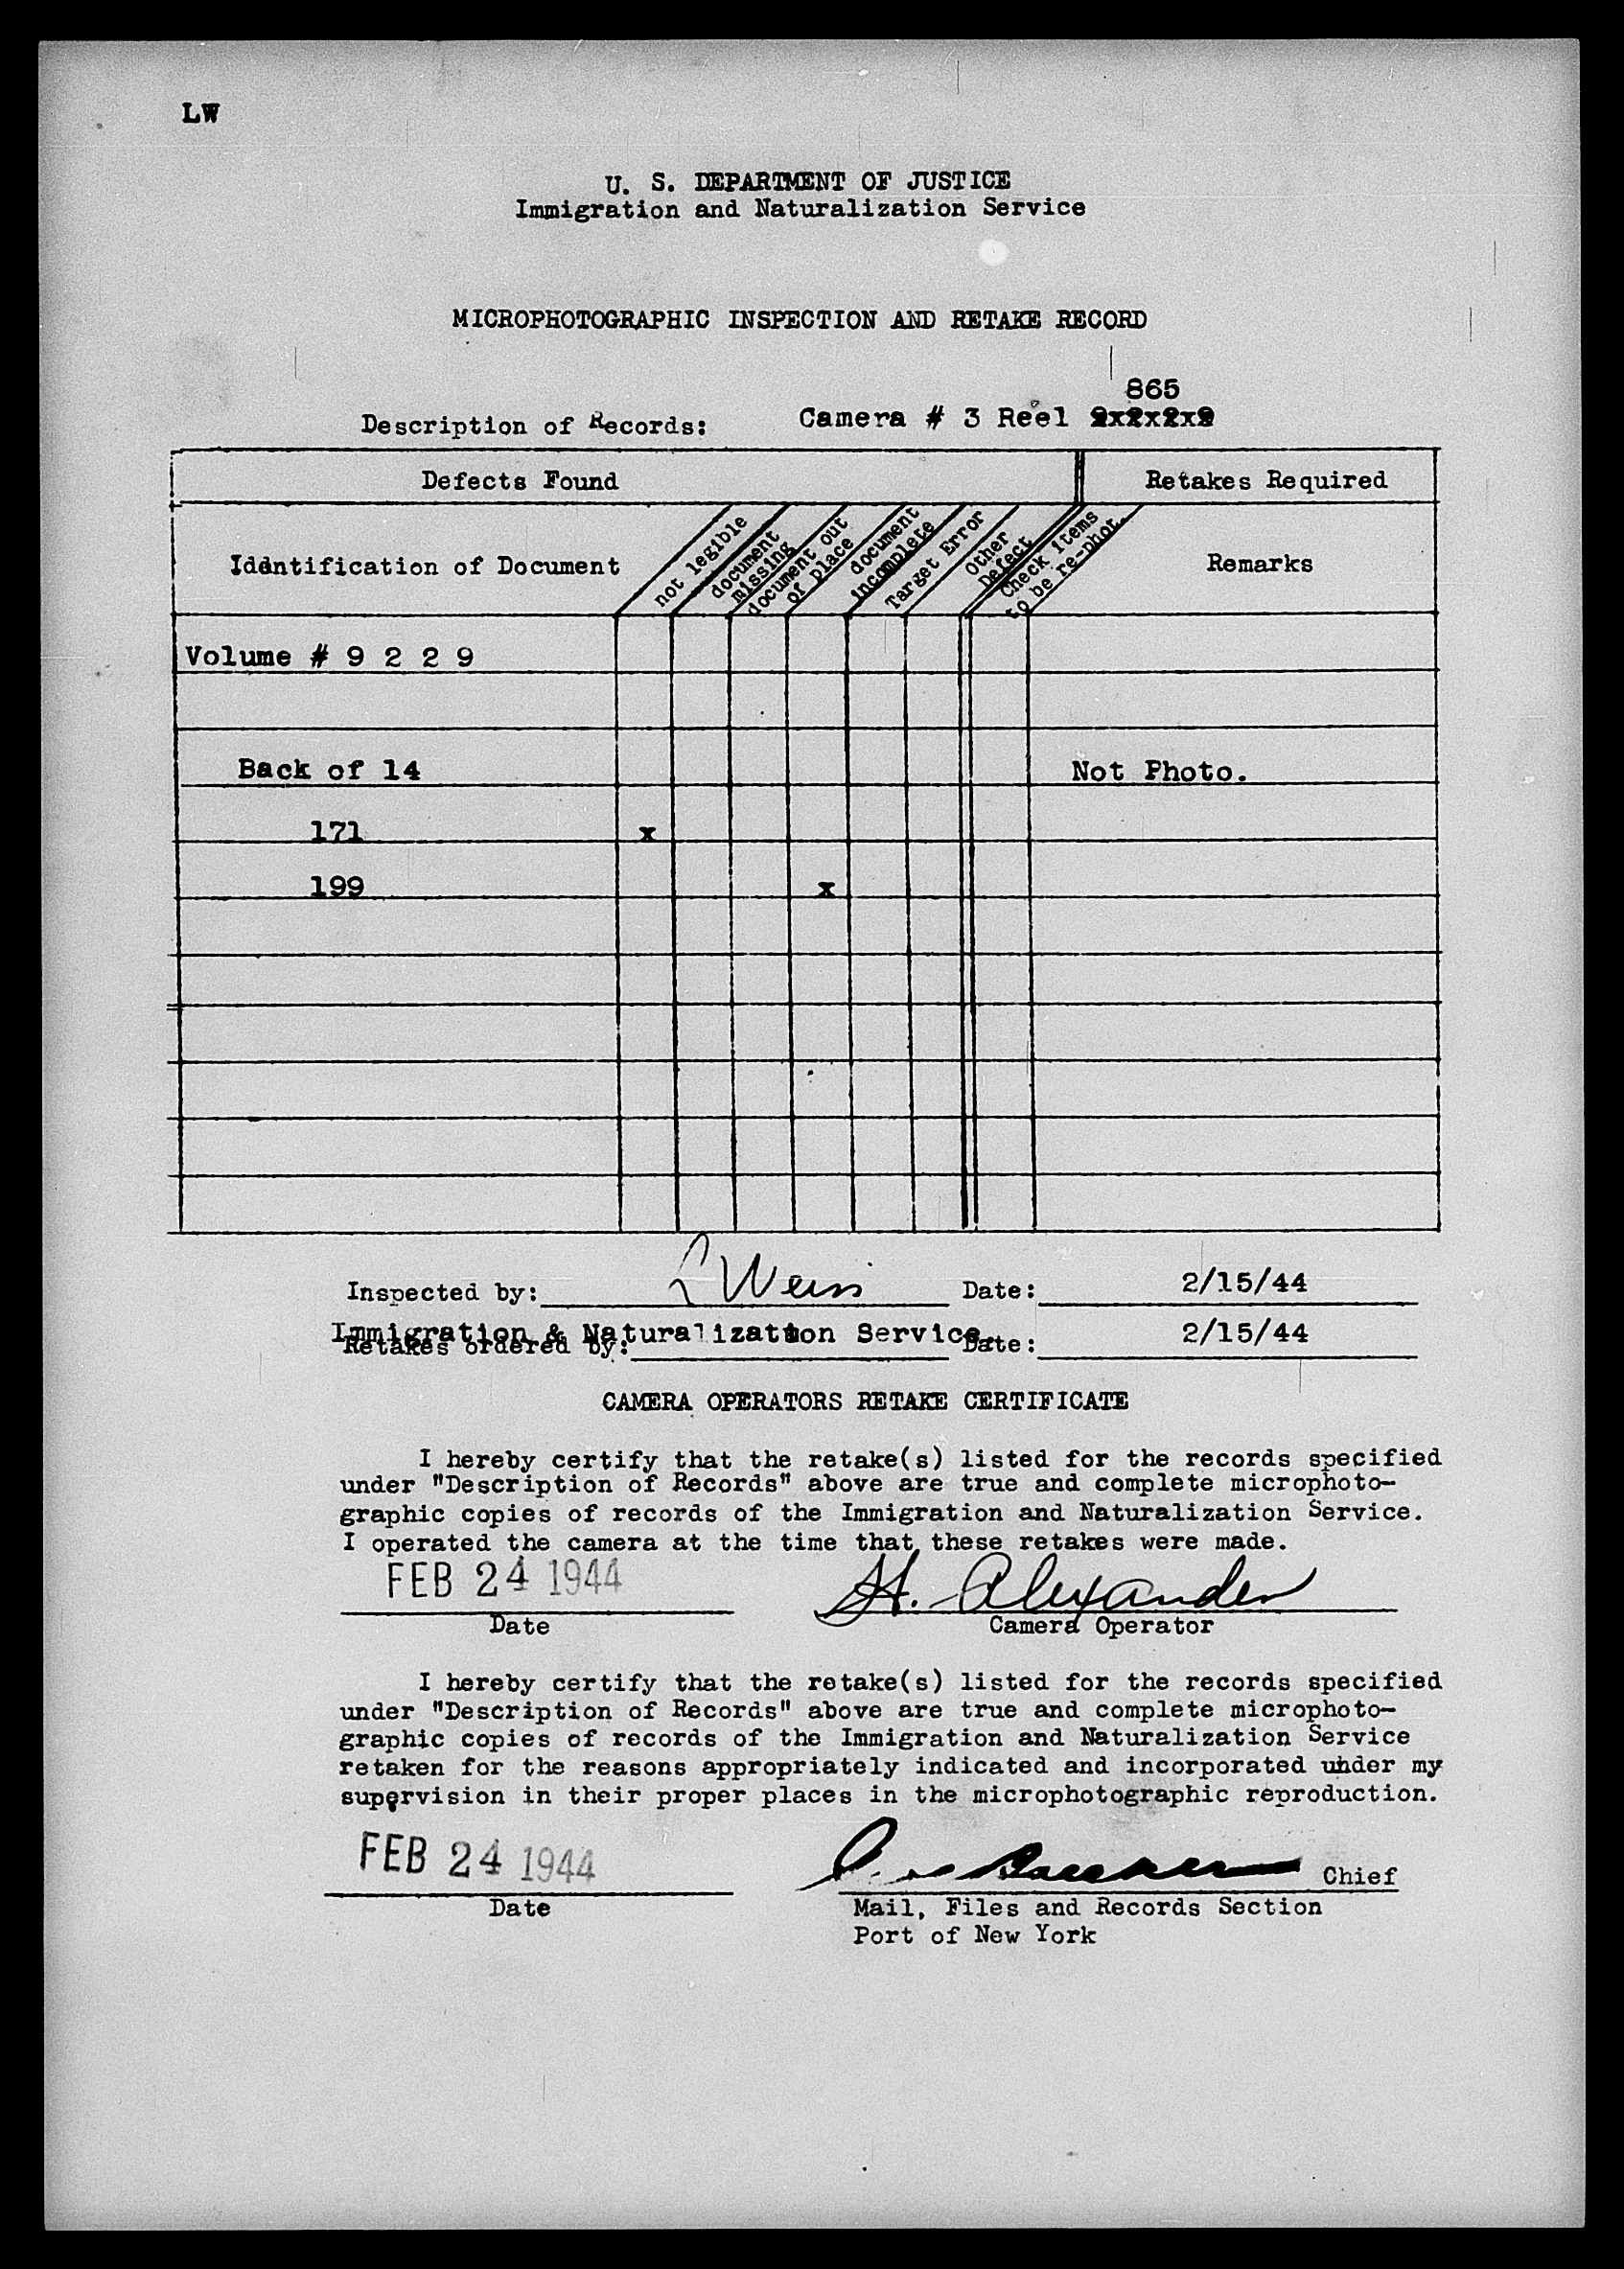 LW
U. S. DEPARTMENT OF JUSTICE
Immigration and Naturalization Service
MICROPHOTOGRAPHIC INSPECTION AND RETAKE RECORD
865
Description of Records: Camera # 3 Reel
Defects Found Retakes Required
Identification of Document
not legible
document missing
document out of place
document incomplete
Target Error
Other Defect
Check items to be re-phot.
Remarks
Volume # 9 2 2 9
Back of 14 Not Photo.
171 x
199 x
Inspected by: L Weiss Date: 2/15/44
Immigration & Naturalization Service. 2/15/44
Retakes ordered by: Date:
CAMERA OPERATORS RETAKE CERTIFICATE
I hereby certify that the retake(s) listed for the records specified
under "Description of Records" above are true and complete microphoto-
graphic copies of records of the Immigration and Naturalization Service.
I operated the camera at the time that these retakes were made.
FEB 24 1944 H. Alexander
Date Camera Operator
I hereby certify that the retake(s) listed for the records specified
under "Description of Records" above are true and complete microphoto-
graphic copies of records of the Immigration and Naturalization Service
retaken for the reasons appropriately indicated and incorporated under my
supervision in their proper places in the microphotographic reproduction.
FEB 24 1944 Chief
Date Mail, Files and Records Section
Port of New York